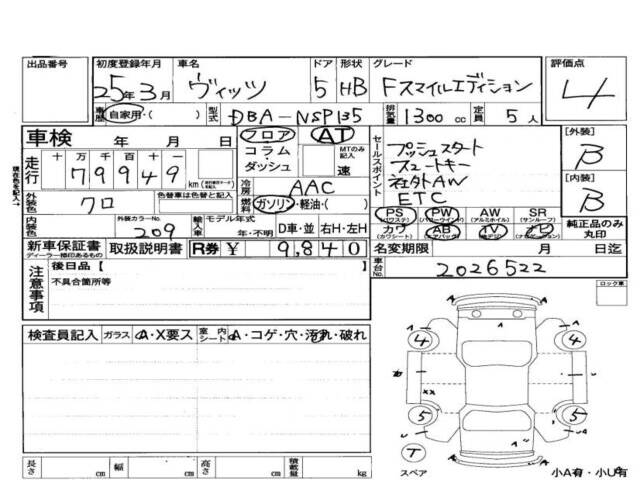 出品番号
初度登録年月
25年3月
車名
ヴィッツ
ドア
5
形状
HB
グレード
Fスマイルエディション
評価点
4
車歴
自家用・( )
型式
DBA-NSP135
排気量
1300 cc
定員
5 人
車検 年 月 日
フロア
AT
コラム
ダッシュ
MTのみ記入
速
セールスポイント
プッシュスタート
スマートキー
社外AW
ETC
[外装]
B
[内装]
B
純正品のみ
丸印
走行
十 万 千 百 十 一
7 9 9 4 9
km
冷房
AAC
外装色
クロ
色替車は色替と記入
燃料
ガソリン・軽油・( )
PS
(パワステ)
PW
(パワーウインド)
AW
(アルミホイル)
SR
(サンルーフ)
カワ
(カワシート)
AB
(エアバック)
TV
ナビ
内装色
外装カラーNo.
209
輸入車
モデル年式
年・不明
D車・並
右H・左H
新車保証書
ディーラー捺印あるもの
取扱説明書
R券 ¥ 9,840
名変期限 月 日迄
車台No.
2026522
注意事項
後日品 [ ]
不具合箇所等
現在色を記入→
ロック車
検査員記入
ガラス
A・X要ス
室内
シート
A・コゲ・穴・汚れ・破れ
A
A
4
4
A
A
A
XX
U
5
5
A
A
T
スペア
小A有・小U有
長さ cm
幅 cm
高さ cm
積載量 kg